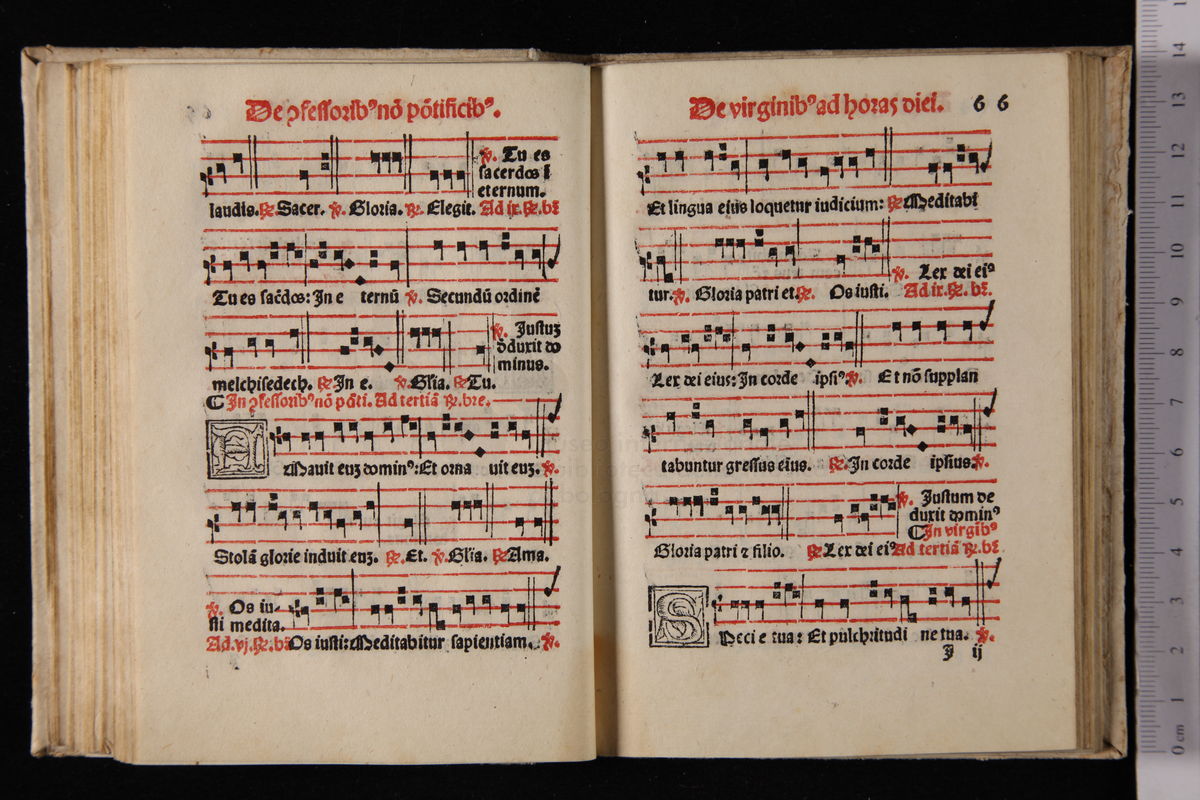 De ꝯfessorib⁹ nō pōtificib⁹.
℣. Tu es
sacerdos ī
eternum.
laudis. ℟. Sacer. ℣. Gloria. ℟. Elegit. Ad ix. ℟. br̄
Tu es sac̄dos: In e ternū ℣. Secundū ordinē
℣. Iustuʒ
d̄duxit do
minus.
melchisedech. ℟. In e. ℣. Gl̄ia. ℟. Tu.
¶ In ꝯfessorib⁹ nō pōti. Ad tertiā ℟. bre.
AMauit euʒ domin⁹: Et orna uit euʒ. ℣.
Stolā glorie induit euʒ. ℟. Et. ℣. Gl̄ia. ℟. Ama.
℣. Os iu-
sti medita.
Ad. vj. ℟. br̄ Os iusti: Meditabitur sapientiam. ℣.
De virginib⁹ ad horas diei. 66
Et lingua eius loquetur iudicium: ℟. Meditabi
℣. Lex dei ei⁹
tur. ℣. Gloria patri et. ℟. Os iusti. Ad ix. ℟. br̄.
Lex dei eius: In corde ipsi⁹. ℣. Et nō supplan
tabuntur gressus eius. ℟. In corde ipsius. ℣.
℣. Iustum de
duxit domin⁹
¶ In virgīb⁹
Gloria patri ⁊ filio. ℟. Lex dei ei⁹ Ad tertiā ℟. br̄
SPeci e tua: Et pulchritudi ne tua. ℣.
I ij
0 cm 1 2 3 4 5 6 7 8 9 10 11 12 13 14